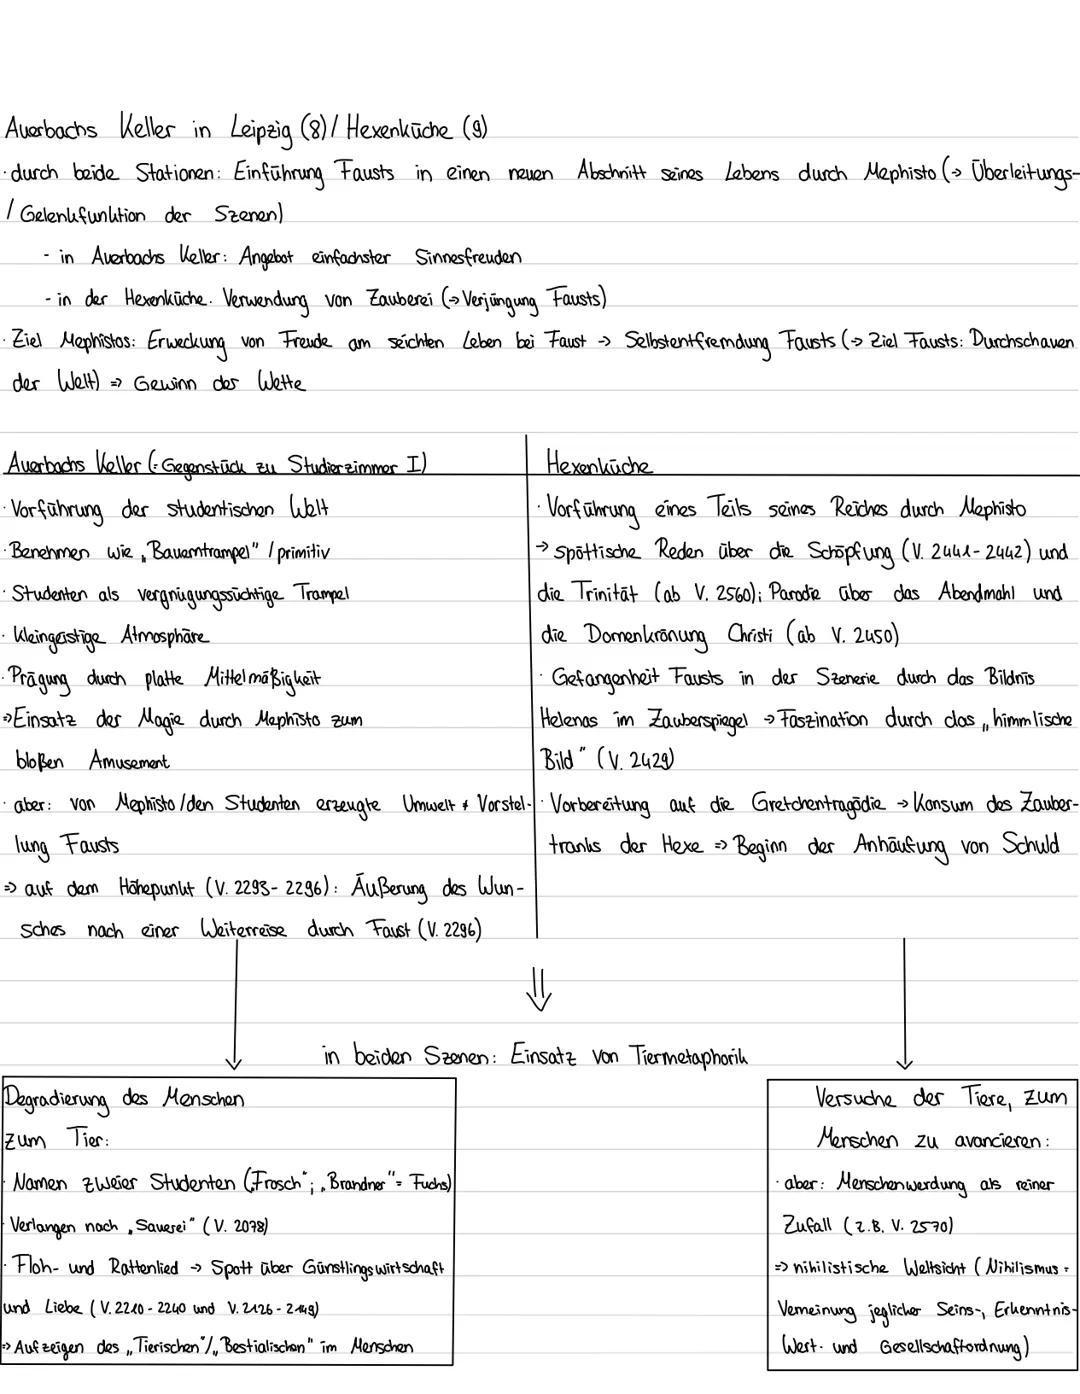 Auerbachs Keller in Leipzig (8)/ Hexenküche (9)
· durch beide Stationen: Einführung Fausts in einen neuen Abschnitt seines Lebens durch Mephisto (→ Überleitungs-
/ Gelenkfunktion der Szenen)
- in Auerbachs Keller: Angebot einfachster Sinnesfreuden
- in der Hexenküche: Verwendung von Zauberei (→ Verjüngung Fausts)
· Ziel Mephistos: Erweckung von Freude am seichten Leben bei Faust → Selbstentfremdung Fausts (→ Ziel Fausts: Durchschauen
der Welt) => Gewinn der Wette
Auerbachs Keller (= Gegenstück zu Studierzimmer I)
· Vorführung der studentischen Welt
· Benehmen wie „Bauerntrampel" / primitiv
· Studenten als vergnügungssüchtige Trampel
· Kleingeistige Atmosphäre
· Prägung durch platte Mittelmäßigkeit
=> Einsatz der Magie durch Mephisto zum
bloßen Amusement
· aber: von Mephisto/den Studenten erzeugte Umwelt ≠ Vorstel-
lung Fausts
=> auf dem Höhepunkt (V. 2293-2296): Äußerung des Wun-
sches nach einer Weiterreise durch Faust (V. 2296)
Hexenküche
· Vorführung eines Teils seines Reiches durch Mephisto
→ spöttische Reden über die Schöpfung (V. 2441-2442) und
die Trinität (ab V. 2560); Parodie über das Abendmahl und
die Dornenkrönung Christi (ab V. 2450)
· Gefangenheit Fausts in der Szenerie durch das Bildnis
Helenas im Zauberspiegel → Faszination durch das „himmlische
Bild" (V. 2429)
· Vorbereitung auf die Gretchentragödie → Konsum des Zauber-
tranks der Hexe => Beginn der Anhäufung von Schuld
in beiden Szenen: Einsatz von Tiermetaphorik
Degradierung des Menschen
zum Tier:
· Namen zweier Studenten („Frosch"; „Brandner" = Fuchs)
· Verlangen nach „Sauerei" (V. 2078)
· Floh- und Rattenlied → Spott über Günstlingswirtschaft
und Liebe (V. 2210-2240 und V. 2126-2149)
=> Aufzeigen des „Tierischen"/„Bestialischen" im Menschen
Versuche der Tiere, zum
Menschen zu avancieren:
· aber: Menschenwerdung als reiner
Zufall (z.B. V. 2570)
=> nihilistische Weltsicht (Nihilismus =
Verneinung jeglicher Seins-, Erkenntnis-
Wert- und Gesellschaftordnung)